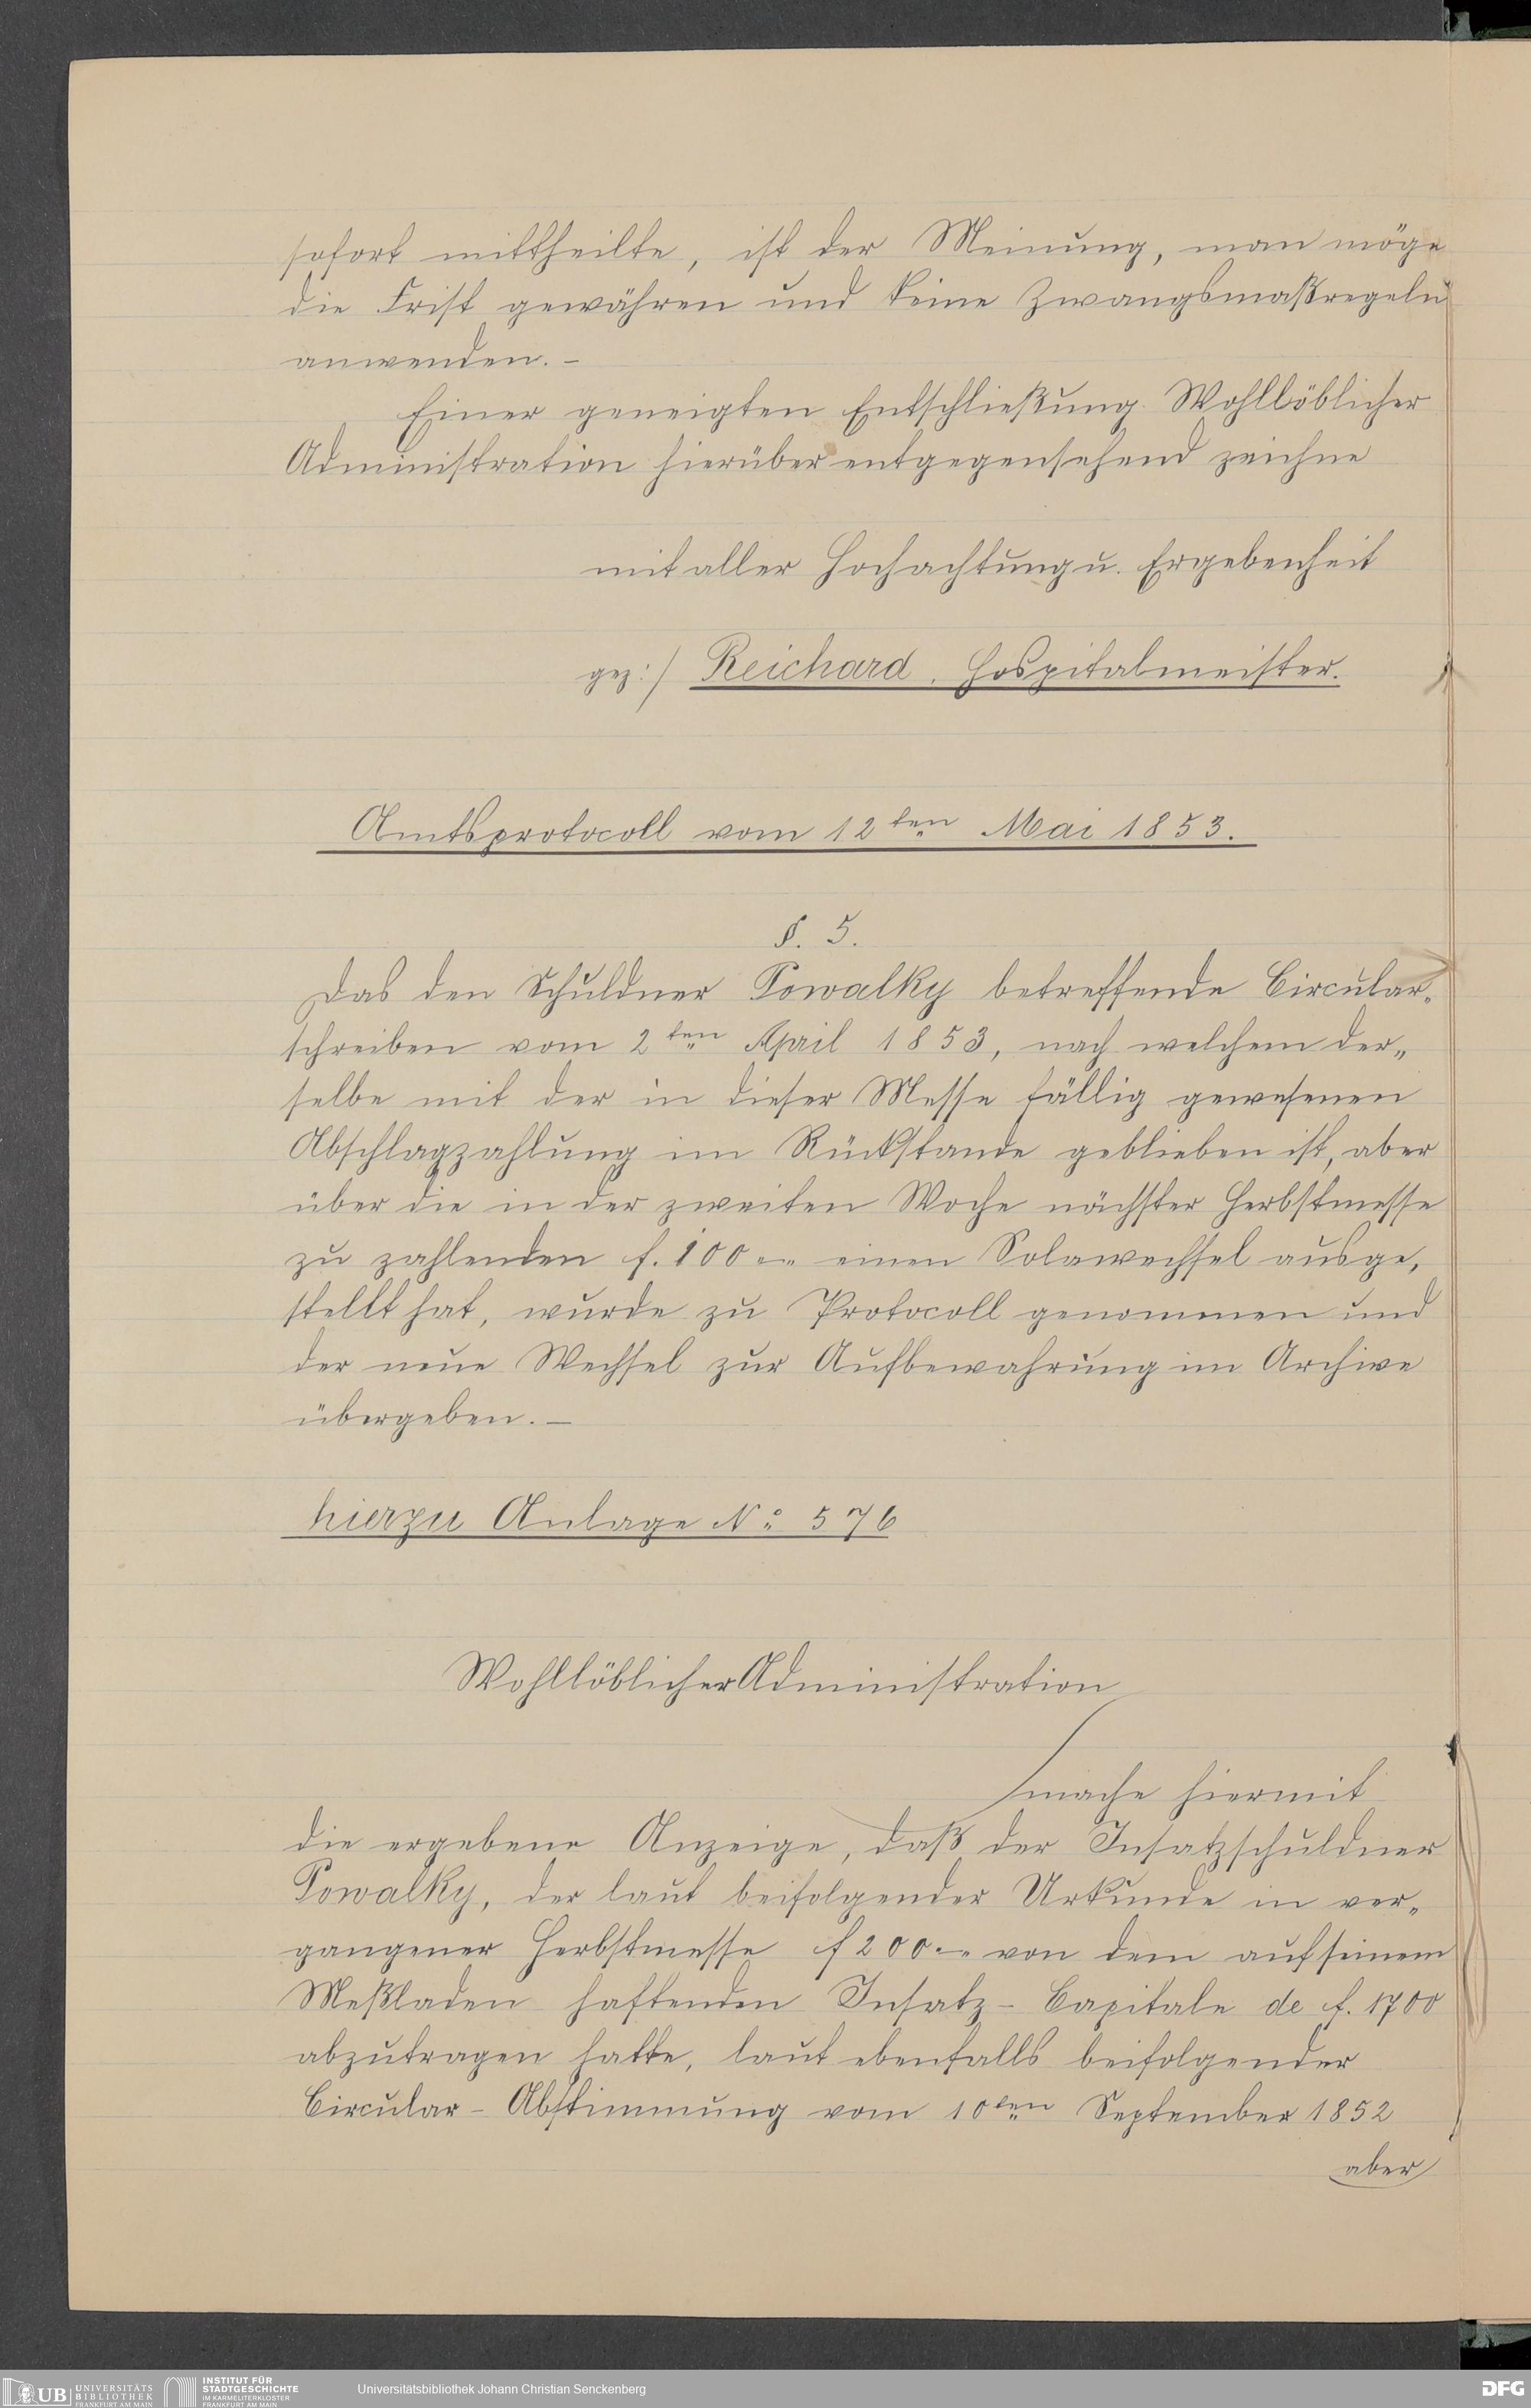 sofort mittheilte, ist der Meinung, man möge
die Frist gewähren und keine Zwangsmaßregeln
anwenden. –
Einer geneigten Entschließung Wohllöblicher
Administration hierüber entgegensehend zeichne
mit aller Hochachtung u. Ergebenheit
gez:/ Reichard, Hospitalmeister.
Amtsprotocoll vom 12ten Mai 1853.
§. 5.
Das den Schuldner Powalky betreffende Circular„
schreiben vom 2ten April 1853, nach welchem der„
selbe mit der in dieser Messe fällig gewesenen
Abschlagzahlung im Rückstande geblieben ist, aber
über die in der zweiten Woche nächster Herbstmesse
zu zahlenden f. 100 „–„ einen Solawechsel ausge„
stellt hat, wurde zu Protocoll genommen und
der neue Wechsel zur Aufbewahrung im Archive
übergeben. –
hierzu Anlage No 576
Wohllöblicher Administration
mache hiermit
die ergebene Anzeige, daß der Insatzschuldner
Powalky, der laut beifolgender Urkunde in ver„
gangener Herbstmesse f 200 „–„ von dem auf seinem
Meßladen haftenden Insatz-Capitale de f. 1700
abzutragen hatte, laut ebenfalls beifolgender
Circular-Abstimmung vom 10ten September 1852
aber
UB UNIVERSITÄTS
BIBLIOTHEK
FRANKFURT AM MAIN
INSTITUT FÜR
STADTGESCHICHTE
IM KARMELITERKLOSTER
FRANKFURT AM MAIN
Universitätsbibliothek Johann Christian Senckenberg
DFG